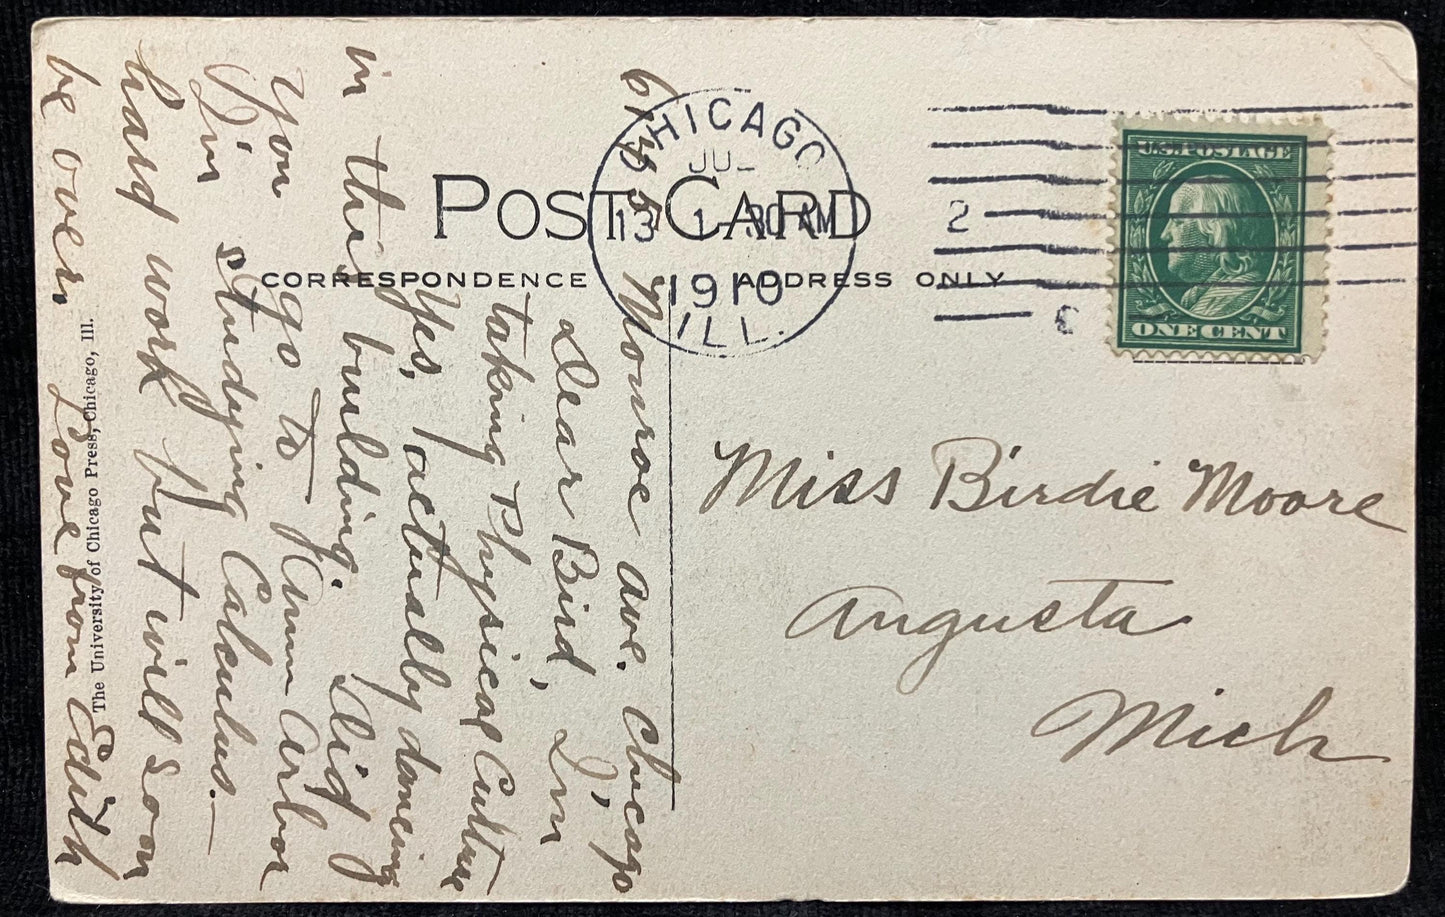 POST CARD
CORRESPONDENCE
ADDRESS ONLY
CHICAGO
JUL
13
1-30 AM
1910
ILL.
2
U.S. POSTAGE
ONE CENT
6135 Monroe ave. Chicago
Dear Bird, I'm
taking Physical Culture
Yes, actually dancing
in this building. Did
you go to Ann Arbor
I'm studying Calculus.—
hard work but will soon
be over. Love from Edith
The University of Chicago Press, Chicago, Ill.
Miss Birdie Moore
Augusta
Mich